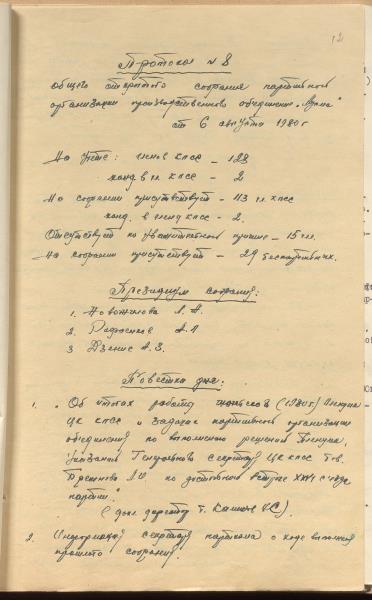 12
Протокол №8
общего открытого собрания партийной
организации производственного объединения
от 6 августа 1980г
На учете: членов КПСС – 128
канд. в чл. КПСС – 2
На собрании присутствует – 113 чл. КПСС
канд. в члены КПСС – 2.
Отсутствует по уважительной причине – 15 чел.
На собрании присутствует – 29 беспартийных.
Президиум собрания:
1. Новожилова Л. А.
2. А. П
3 Дзенис А. З.
Повестка дня:
1. "Об итогах работы июньского (1980г) Пленума
ЦК КПСС и задачах партийной организации
объединения по выполнению решений Пленума,
указаний Генерального секретаря ЦК КПСС тов.
Брежнева Л.И. по достойной встрече XXVI съезда
партии".
(докл. директор т.
2. Информация секретаря парткома о ходе выполнения
прошлого собрания.